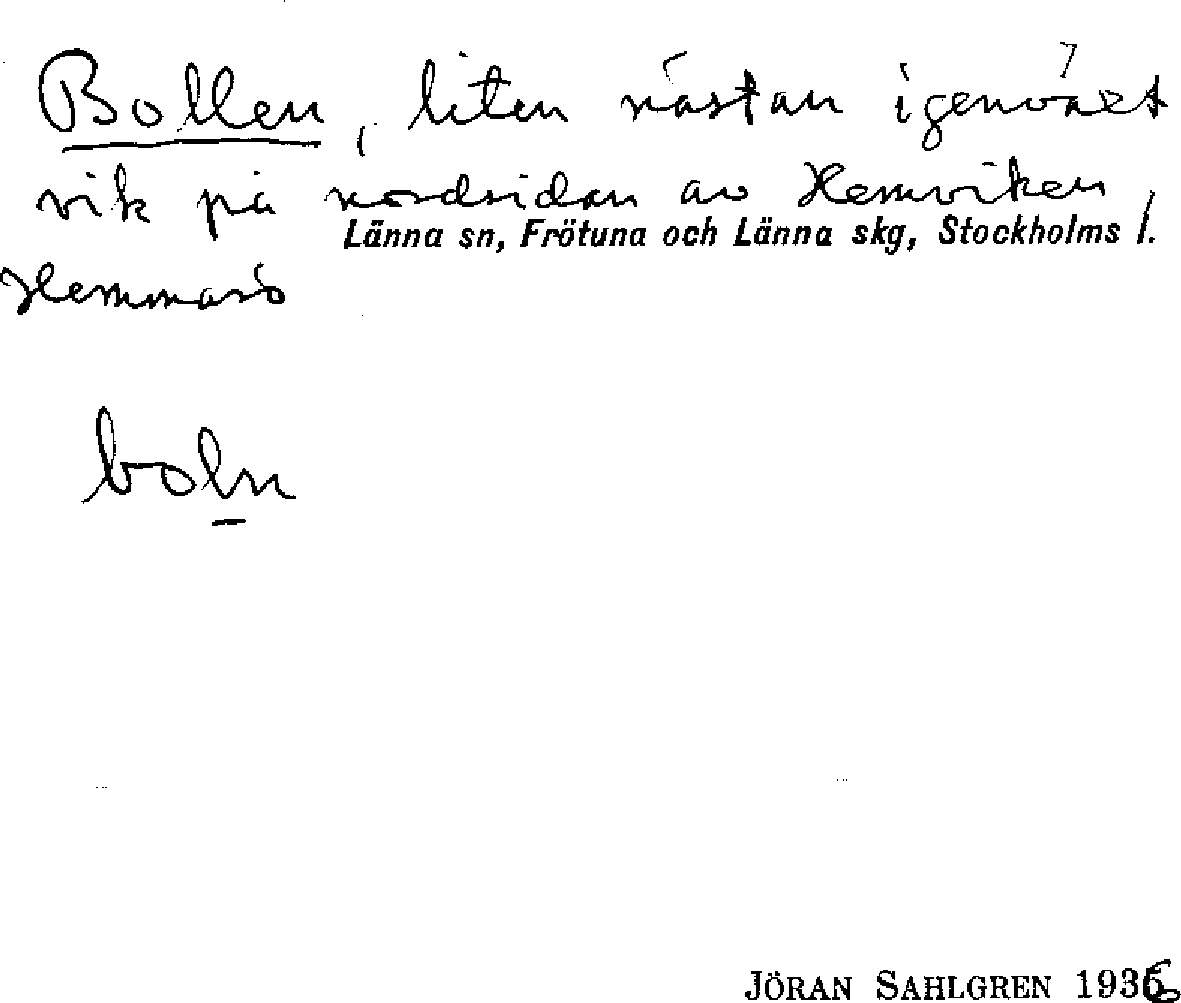 Bollen, liten nästan igenväxt
vik på nordsidan av Hemviken,
Länna sn, Frötuna och Länna skg, Stockholms l.
Hemmarö
boln
JÖRAN SAHLGREN 1936